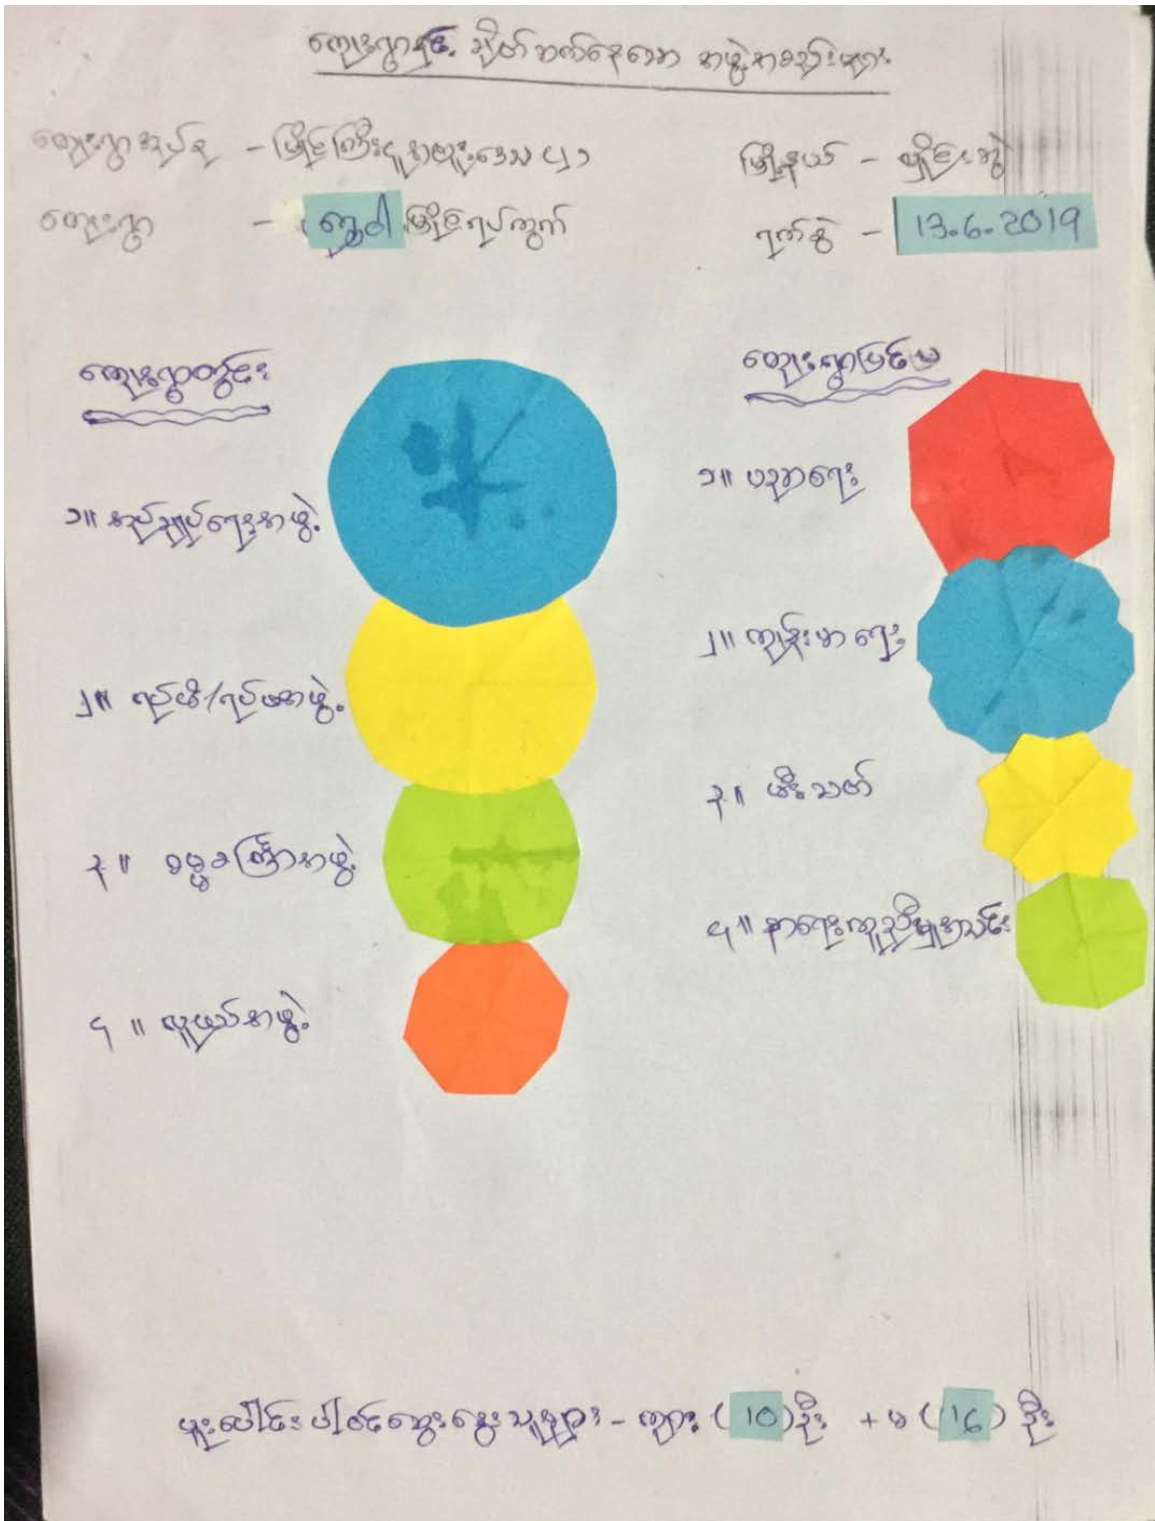 ကျေးရွာနှင့် ချိတ်ဆက်နေသော အဖွဲ့အစည်းများ
ကျေးရွာအုပ်စု - မြိုင်ကြီးငူအထူးဒေသ ၄၂၁
မြို့နယ် - လှိုင်းဘွဲ့
ကျေးရွာ - မြိုင်ရပ်ကွက်
ရက်စွဲ - 13.6.2019
ကျေးရွာတွင်း
၁။ အုပ်ချုပ်ရေးအဖွဲ့
၂။ ရပ်မိ/ရပ်ဖအဖွဲ့
၃။ ဓမ္မစကြာအဖွဲ့
၄။ လူငယ်အဖွဲ့
ကျေးရွာပြင်ပ
၁။ ပညာရေး
၂။ ကျန်းမာရေး
၃။ မီးသတ်
၄။ နာရေးကူညီမှုအသင်း
ပူးပေါင်းပါဝင်ဆွေးနွေးသူများ - ကျား (10) ဦး + မ (16) ဦး